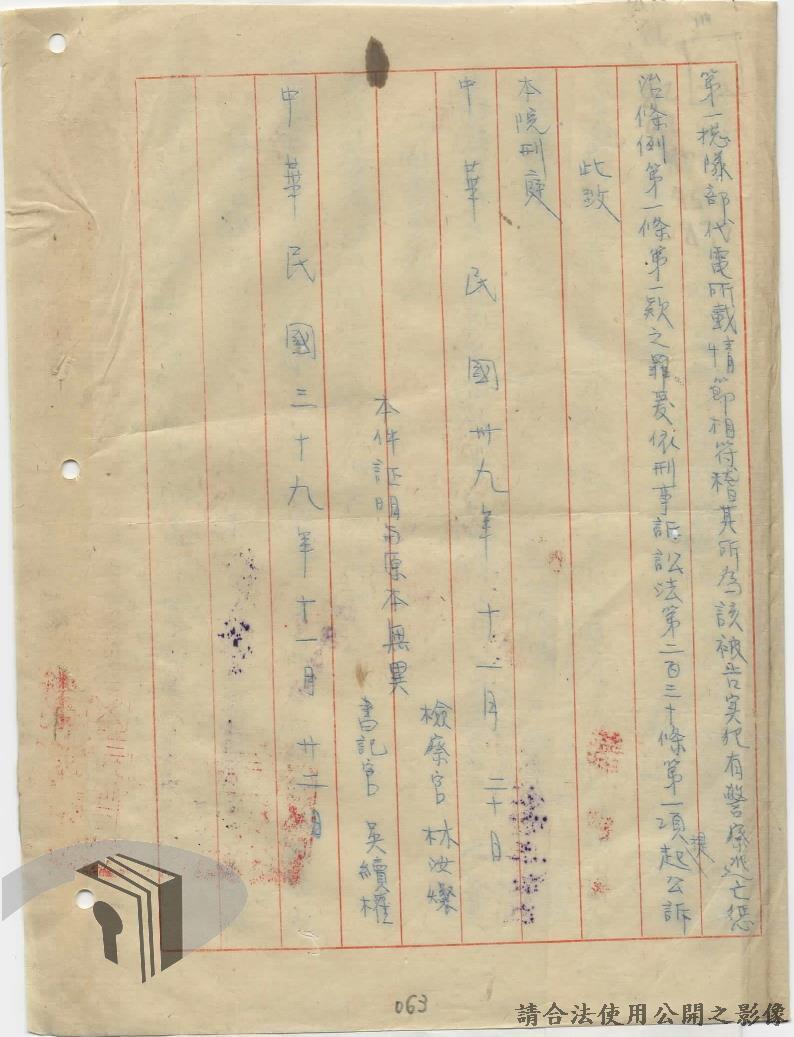 第一總隊部代電所載情節相符稽其所為該被告实犯有警察逃亡懲
治條例第一條第一款之罪爰依刑事訴訟法第二百三十條第一項提起公訴
此致
本院刑庭
中華民國卅九年十一月二十日
檢察官林汝燦
本件証明与原本無異
書記官吳續權
中華民國三十九年十一月廿二日
063
請合法使用公開之影像